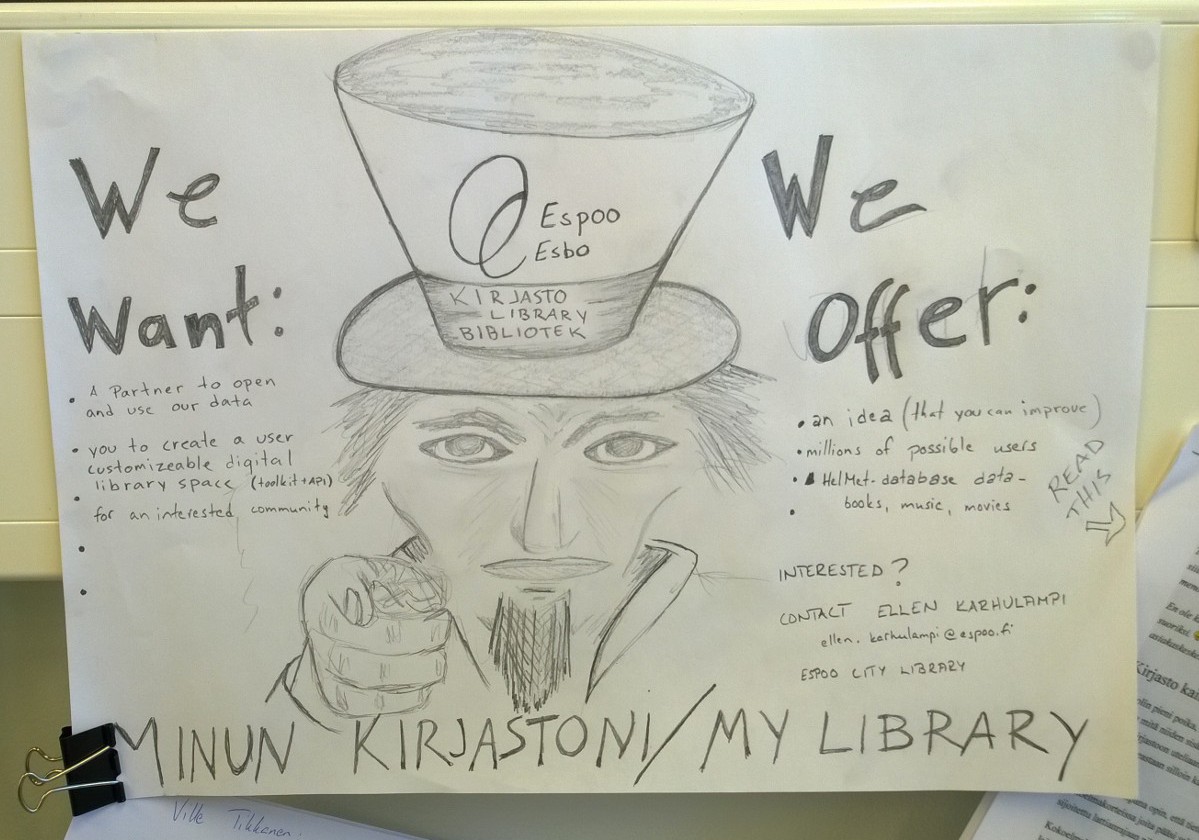 We
Want:
• A Partner to open
and use our data
• you to create a user
customizeable digital
library space (toolkit+API)
•
for an interested community
•
•
Espoo
Esbo
KIRJASTO
LIBRARY
BIBLIOTEK
We
Offer:
• an idea (that you can improve)
• millions of possible users
• HelMet-database data-
books, music, movies
•
READ
THIS
INTERESTED?
CONTACT ELLEN KARHULAMPI
ellen.karhulampi@espoo.fi
ESPOO CITY LIBRARY
MINUN KIRJASTONI/MY LIBRARY
Ville Tikkanen.
En ole
Kirjasto